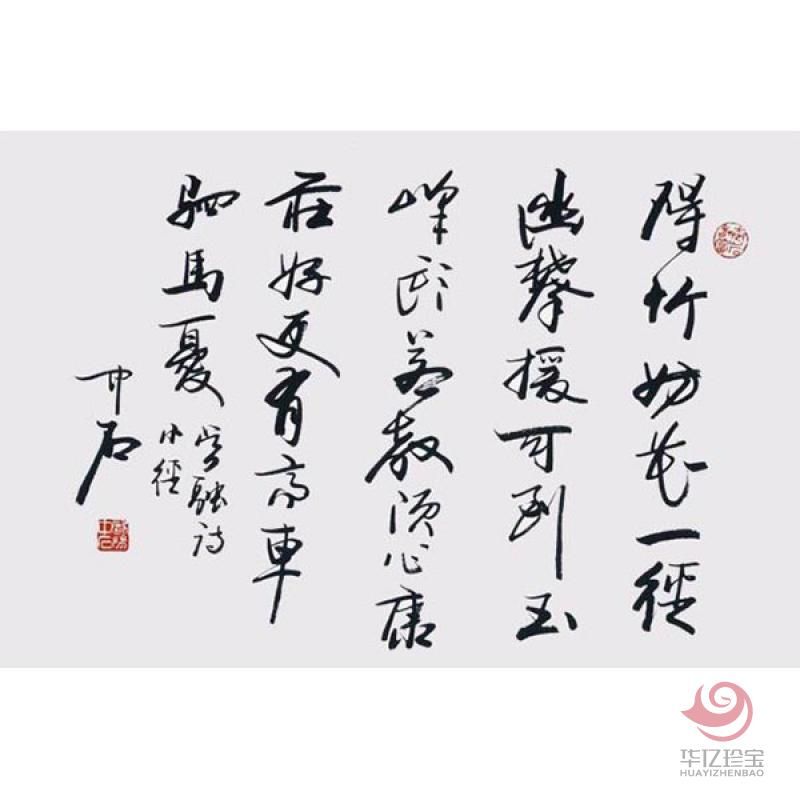 碍竹妨花一徑
幽攀援可到玉
峰頭若教須作康
莊好更有高車
駟馬憂
吴融詩
小徑
中石
华亿珍宝
HUAYIZHENBAO